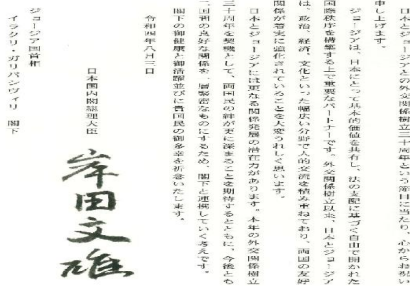 日本とジョージアとの外交関係樹立三十周年という節目に当たり、心からお祝い
申し上げます。
ジョージアは、日本にとって基本的価値を共有し、法の支配に基づく自由で開かれた
国際秩序を構築する上で重要なパートナーです。外交関係樹立以来、日本とジョージア
は、政治、経済、文化といった幅広い分野で人的交流を積み重ねており、両国の友好
関係が着実に強化されていることを大変うれしく思います。
日本とジョージアには更なる関係発展の潜在力があります。本年の外交関係樹立
三十周年を契機として、両国民の絆が更に深まることを期待するとともに、今後とも
二国間の良好な関係を一層緊密なものにするため、閣下と連携していく考えです。
閣下の御健康と御活躍並びに貴国民の御多幸を祈念いたします。
令和四年八月三日
日本国内閣総理大臣
岸田文雄
ジョージア国首相
イラクリ・ガリバシヴィリ 閣下